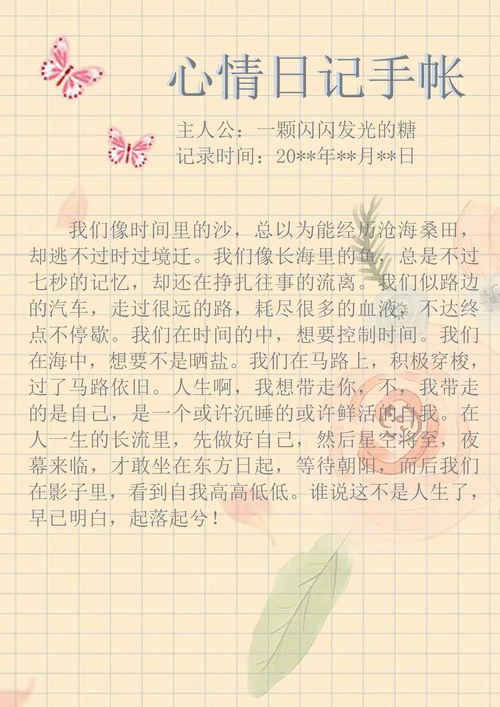 心情日记手帐
主人公：一颗闪闪发光的糖
记录时间：20**年**月**日
我们像时间里的沙，总以为能经历沧海桑田，
却逃不过时过境迁。我们像长海里的鱼，总是不过
七秒的记忆，却还在挣扎往事的流离。我们似路边
的汽车，走过很远的路，耗尽很多的血液，不达终
点不停歇。我们在时间的中，想要控制时间。我们
在海中，想要不是晒盐。我们在马路上，积极穿梭，
过了马路依旧。人生啊，我想带走你，不，我带走
的是自己，是一个或许沉睡的或许鲜活的自我。在
人一生的长流里，先做好自己，然后星空将至，夜
幕来临，才敢坐在东方日起，等待朝阳，而后我们
在影子里，看到自我高高低低。谁说这不是人生了，
早已明白，起落起兮！